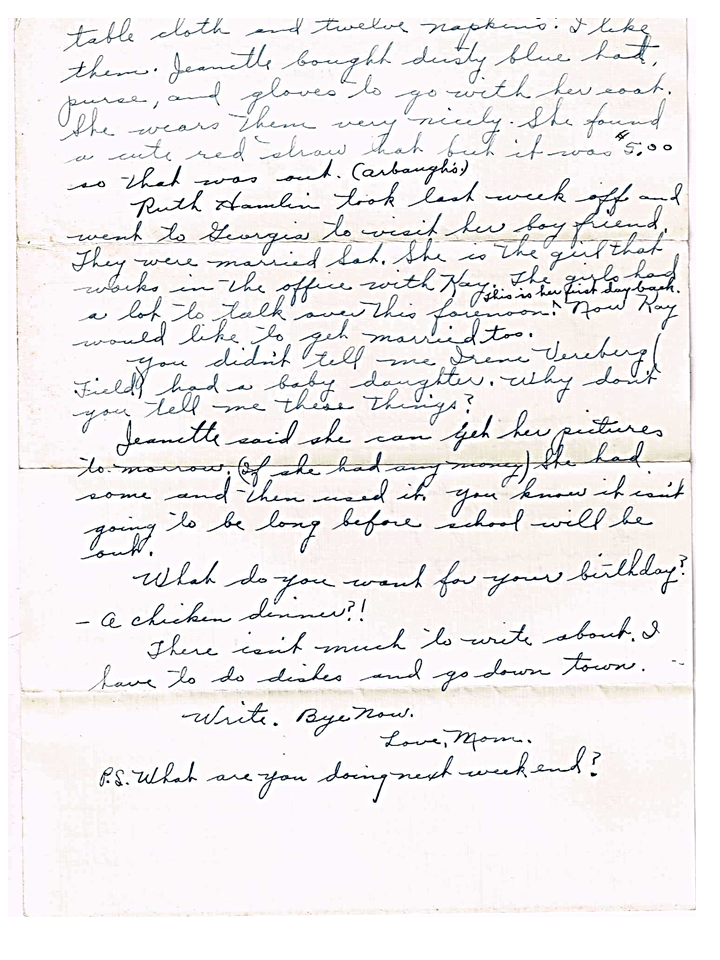 table cloth and twelve napkins. I like
them. Jeanette bought dusty blue hat,
purse, and gloves to go with her coat.
She wears them very nicely. She found
a cute red straw hat but it was $5.00
so that was out. (Arbaugh's)
Ruth Hamlin took last week off and
went to Georgia to visit her boy friend.
They were married Sat. She is the girl that
works in the office with Kay. The girls had
This is her first day back.
a lot to talk over this forenoon! Now Kay
would like to get married too.
You didn't tell me Irene Vereberg (
Field) had a baby daughter. Why don't
you tell me these things?
Jeanette said she can get her pictures
to-morrow. (If she had any money) She had
some and then used it. You know it isn't
going to be long before school will be
out.
What do you want for your birthday?
- A chicken dinner?!
There isn't much to write about. I
have to do dishes and go down town. --
Write. Bye Now.
Love, Mom.
P.S. What are you doing next week end?